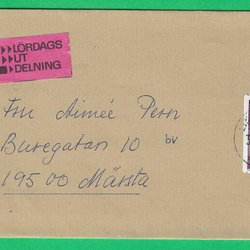 LÖRDAGS
UT
DELNING
Fru Aimée Pern
Buregatan 10 bv
195 00 Märsta